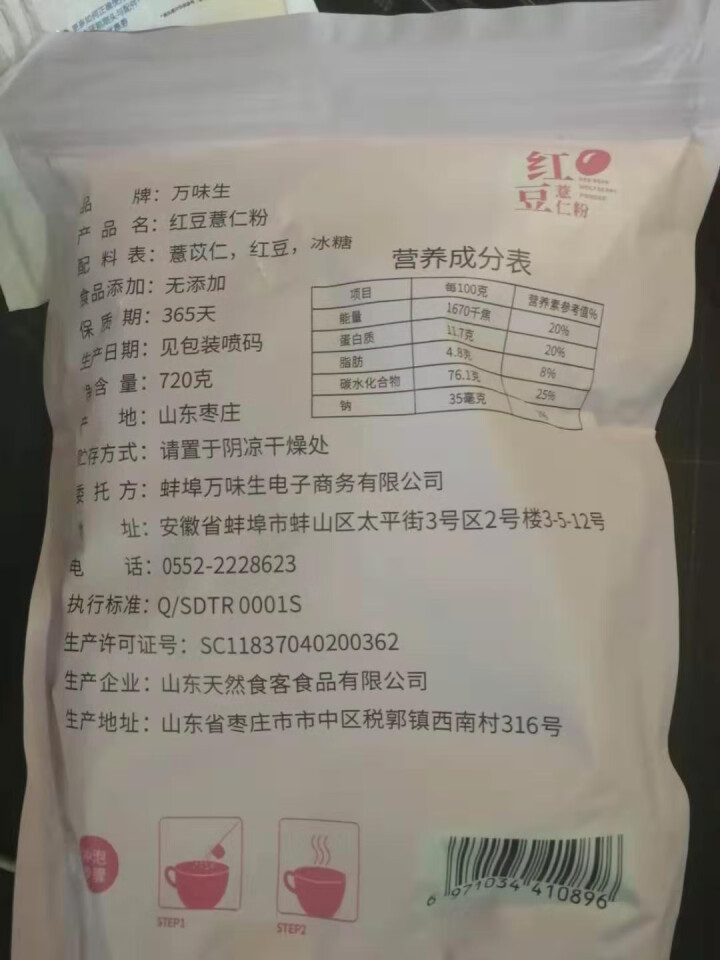 红
豆
薏
仁粉
品 牌：万味生
产 品 名：红豆薏仁粉
配 料 表：薏苡仁，红豆，冰糖
食品添加：无添加
保 质 期：365天
生产日期：见包装喷码
净含 量：720克
产 地：山东枣庄
贮存方式：请置于阴凉干燥处
委 托 方：蚌埠万味生电子商务有限公司
址：安徽省蚌埠市蚌山区太平街3号区2号楼3-5-12号
电 话：0552-2228623
执行标准：Q/SDTR 0001S
生产许可证号：SC11837040200362
生产企业：山东天然食客食品有限公司
生产地址：山东省枣庄市市中区税郭镇西南村316号
营养成分表
项目 每100克 营养素参考值%
能量 1670千焦 20%
蛋白质 11.7克 20%
脂肪 4.8克 8%
碳水化合物 76.1克 25%
钠 35毫克
STEP1
STEP2
6 971034 410896